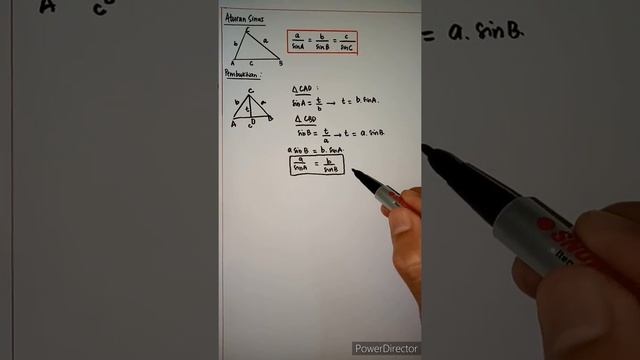 Aturan Sinus
C
b a
A c B
a/sinA = b/sinB = c/sinC
Pembuktian :
C
b t a
A D B
c
Δ CAD :
sinA = t/b → t = b. sinA.
Δ CBD
sinB = t/a → t = a. sinB.
a sinB = b. sinA.
a/sinA = b/sinB
A c D
= a. sinB.
PowerDirector